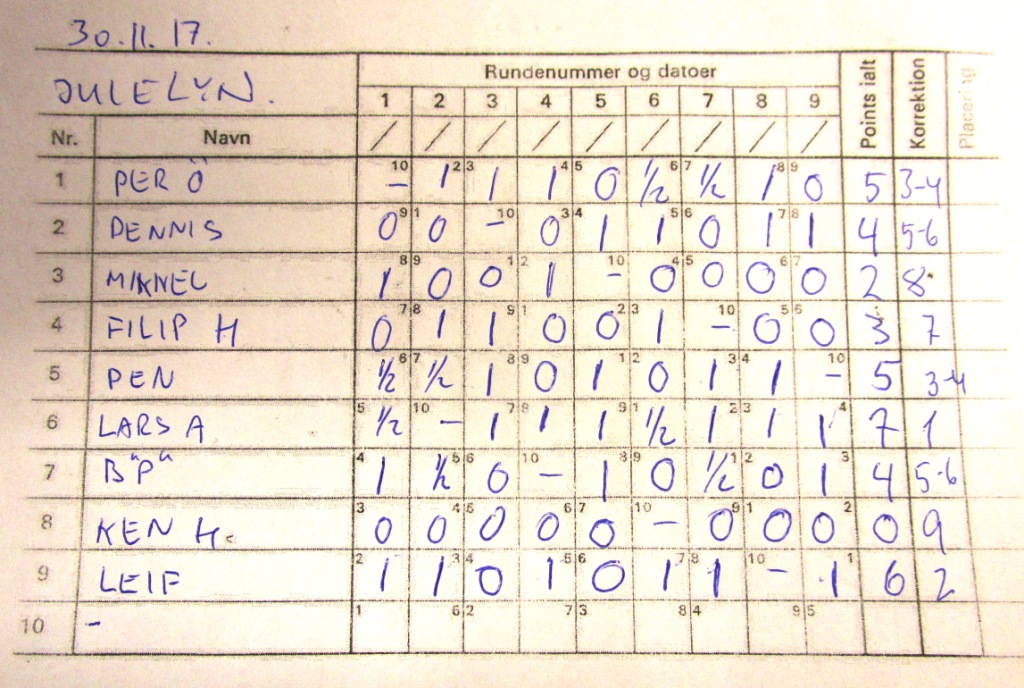 30.11.17.
JULELYN.
Rundenummer og datoer
Points ialt
Korrektion
Placering
1 2 3 4 5 6 7 8 9
Nr. Navn / / / / / / / / /
1 PER Ö 10 – 2 1 3 1 4 1 5 0 6 ½ 7 ½ 8 1 9 0 5 3-4
2 DENNIS 9 0 1 0 10 – 3 0 4 1 5 1 6 0 7 1 8 1 4 5-6
3 MIKKEL 8 1 9 0 1 0 2 1 10 – 4 0 5 0 6 0 7 0 2 8.
4 FILIP H 7 0 8 1 9 1 1 0 2 0 3 1 10 – 5 0 6 0 3 7
5 PEN 6 ½ 7 ½ 8 1 9 0 1 1 2 0 3 1 4 1 10 – 5 3-4
6 LARS A 5 ½ 10 – 7 1 8 1 9 1 1 ½ 2 1 3 1 4 1 7 1
7 B"P" 4 1 5 ½ 6 0 10 – 8 1 9 0 1 ½ 2 0 3 1 4 5-6
8 KEN H. 3 0 4 0 5 0 6 0 7 0 10 – 9 0 1 0 2 0 0 9
9 LEIF 2 1 3 1 4 0 5 1 6 0 7 1 8 1 10 – 1 1 6 2
10 – 1 6 2 7 3 8 4 9 5